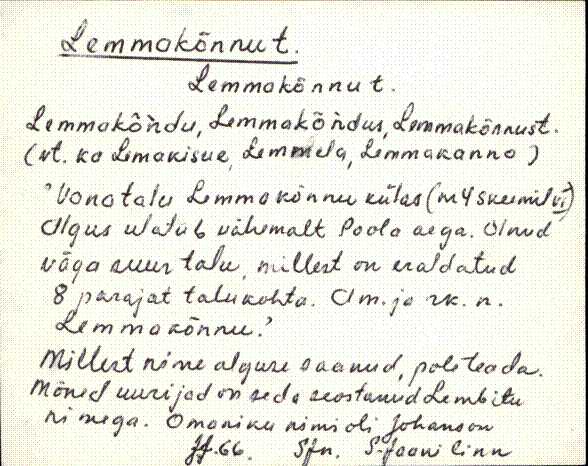 Lemmakõnnut.
Lemmakõnnut.
Lemmakõǹdu, Lemmakõǹdus, Lemmakõnnust.
(vt. ka Lemakisue, Lemmela, Lemmakanno)
"Vanatalu Lemmakõnnu külas (m 4 skeemil VI)
Algus ulatub vähemalt Poola aega. Olnud
väga suur talu, millest on eraldatud
8 parajat talukohta. Am. ja rk. n.
Lemmakõnnu."
Millest nime alguse saanud, pole teada.
Mõned uurijad on seda seostanud Lembitu
nimega. Omaniku nimi oli Johanson
66. Sjn. S-Jaani linn